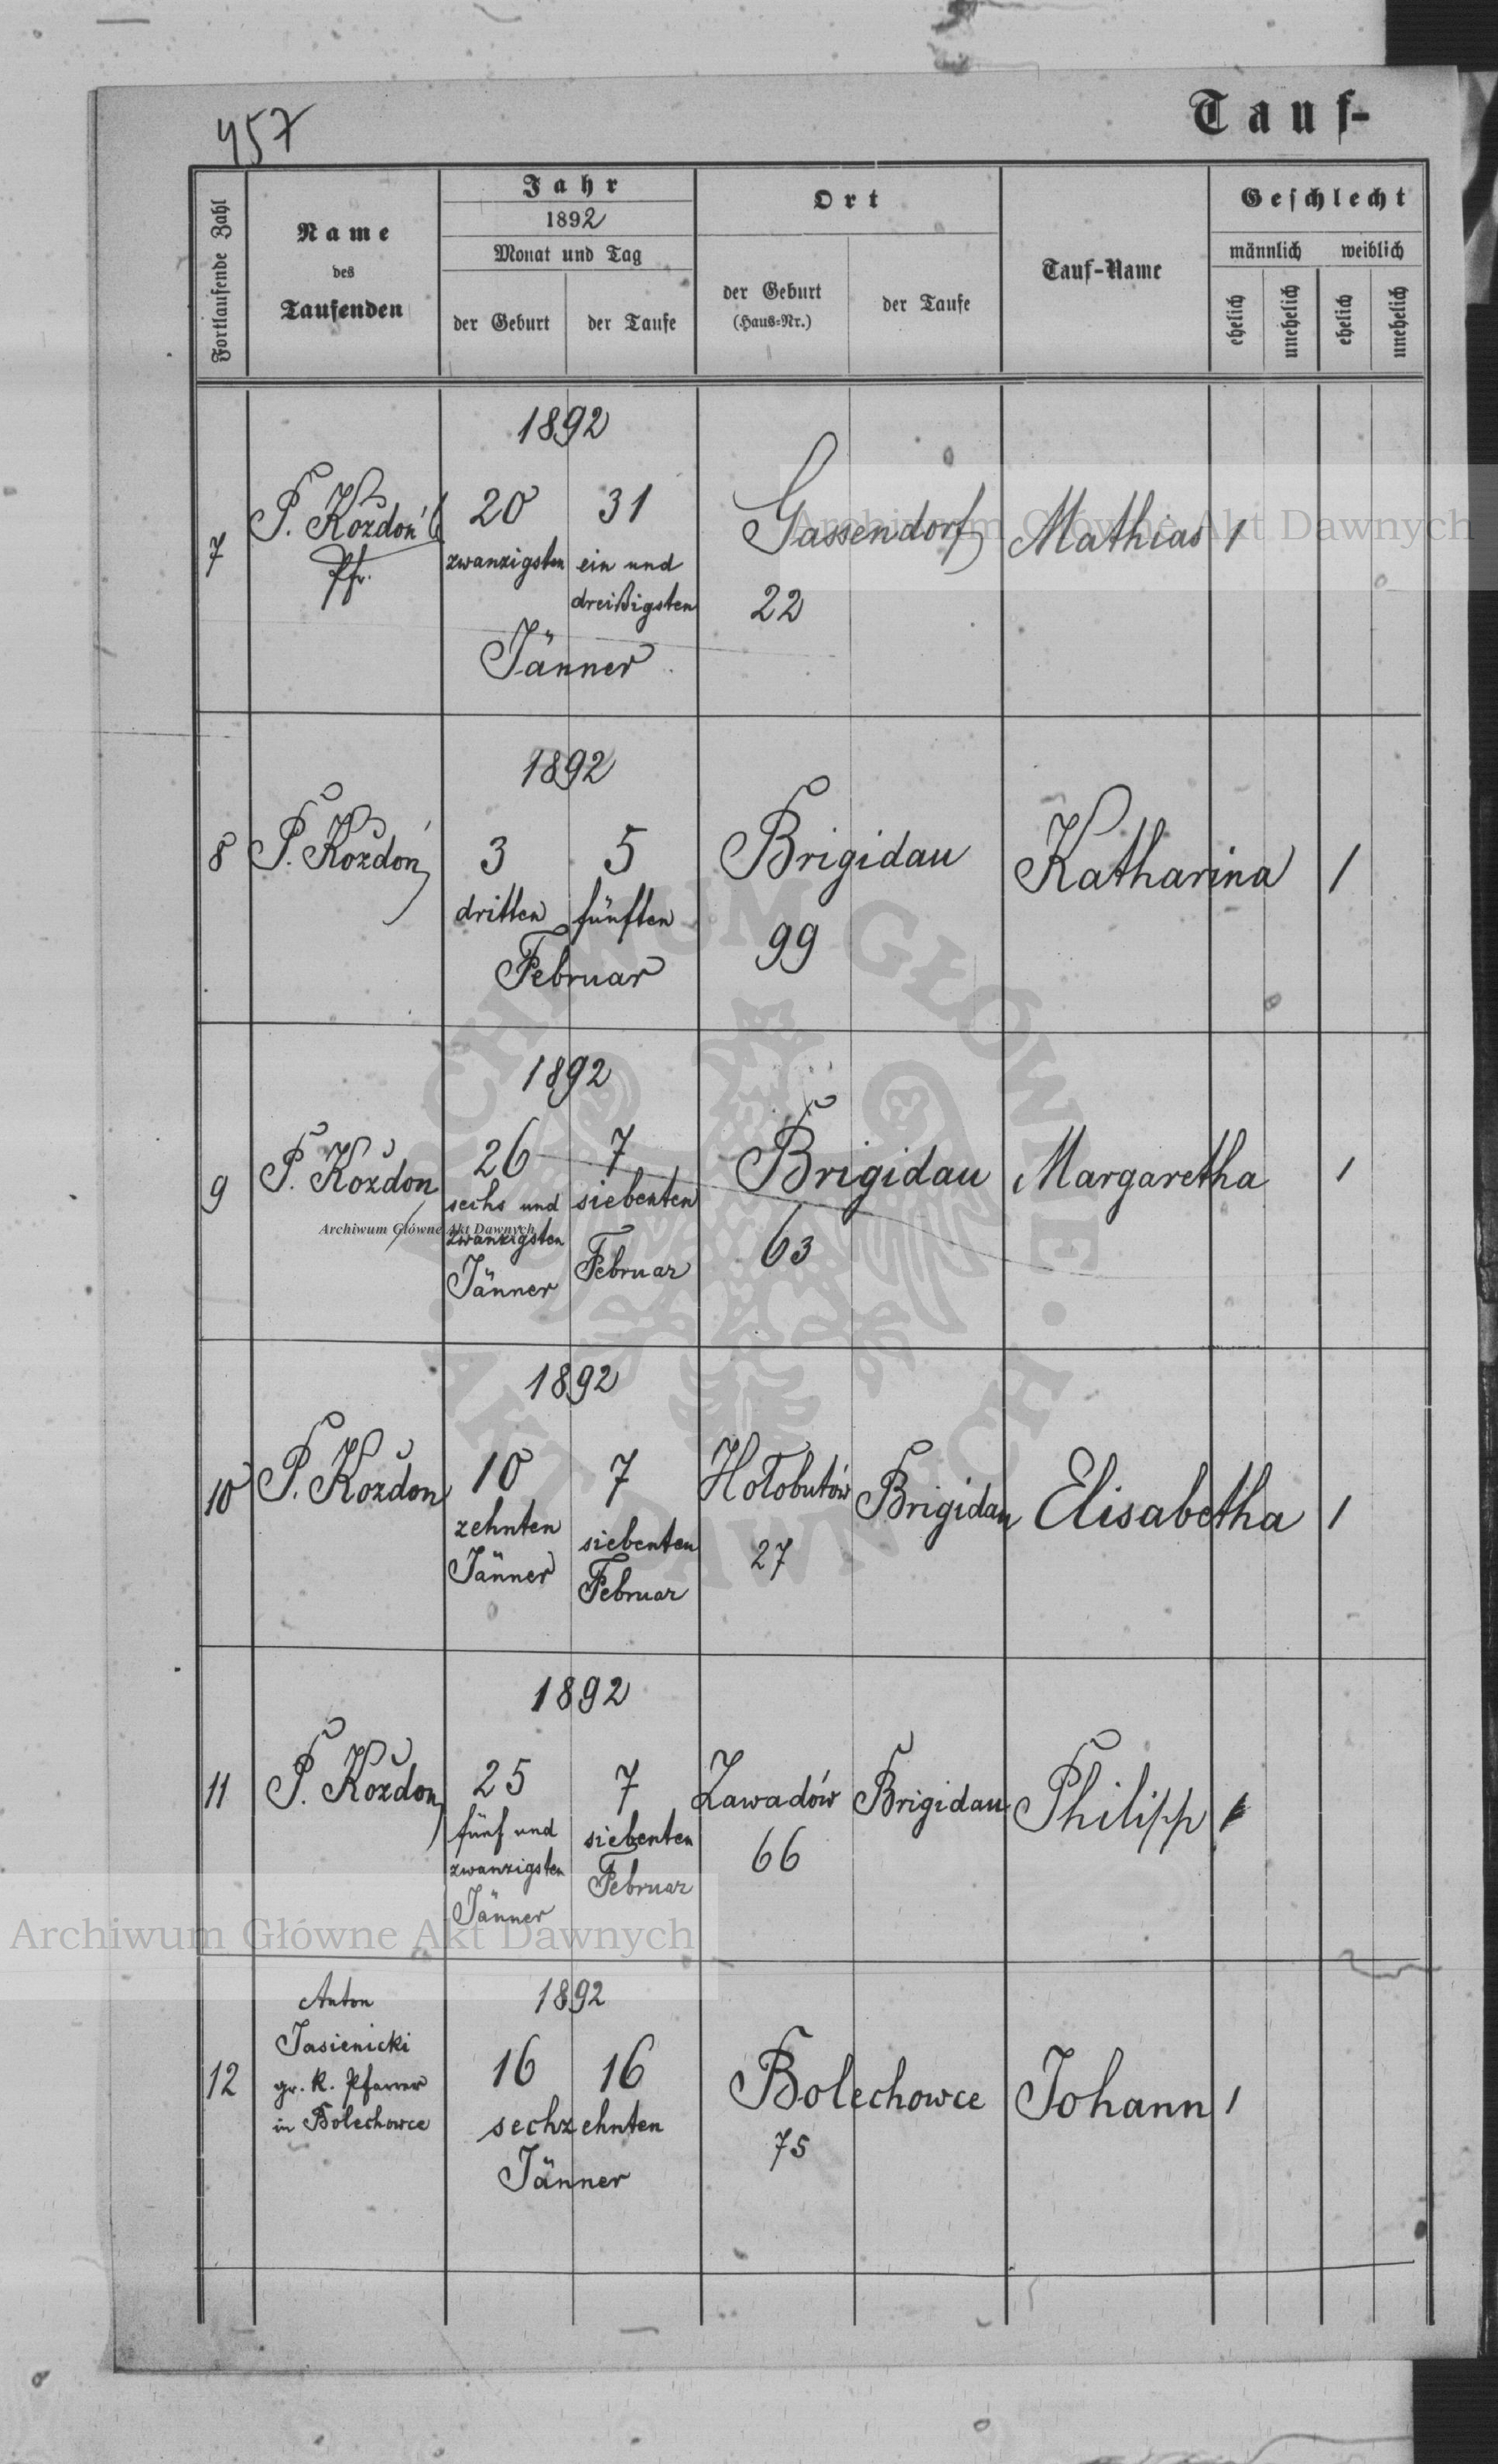 457
Tauf-
Fortlaufende Zahl
Name
des
Taufenden
Jahr
1892
Monat und Tag
der Geburt
der Taufe
Ort
der Geburt
(Haus-Nr.)
der Taufe
Tauf-Name
Geschlecht
männlich
weiblich
ehelich
unehelich
ehelich
unehelich
7
P. Kozdoń
Pfr.
1892
20 31
zwanzigsten ein und
dreißigsten
Jänner
Gassendorf
22
Mathias
1
8
P. Kozdoń
1892
3 5
dritten fünften
Februar
Brigidau
99
Katharina
1
9
P. Kozdon
1892
26 7
sechs und siebenten
zwanzigsten
Jänner Februar
Brigidau
63
Margaretha
1
10
P. Kozdon
1892
10 7
zehnten siebenten
Jänner Februar
Hołobutów
27
Brigidau
Elisabetha
1
11
P. Kozdon
1892
25 7
fünf und siebenten
zwanzigsten Februar
Jänner
Zawadów
66
Brigidau
Philipp
1
12
Anton
Jasienicki
gr. k. Pfarrer
in Bolechowce
1892
16 16
sechzehnten
Jänner
Bolechowce
75
Johann
1
Archiwum Główne Akt Dawnych
Archiwum Główne Akt Dawnych
Archiwum Główne Akt Dawnych
ARCHIWUM GŁÓWNE · AKT DAWNYCH ·